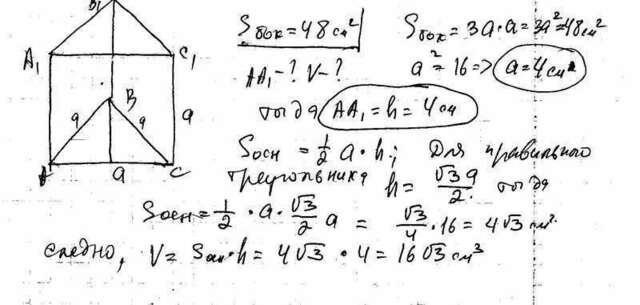 B₁
A₁ C₁
B
a a a
A a C
Sбок = 48 см² Sбок = 3a·a = 3a² = 48 см²
AA₁ - ? V - ? a² = 16 => a = 4 см
тогда AA₁ = h = 4 см
Sосн = 1/2 a · h; Для правильного
треугольника h = √3a/2. тогда
Sосн = 1/2 · a · √3/2 a = √3/4 · 16 = 4√3 см².
следно, V = Sосн·h = 4√3 · 4 = 16√3 см³